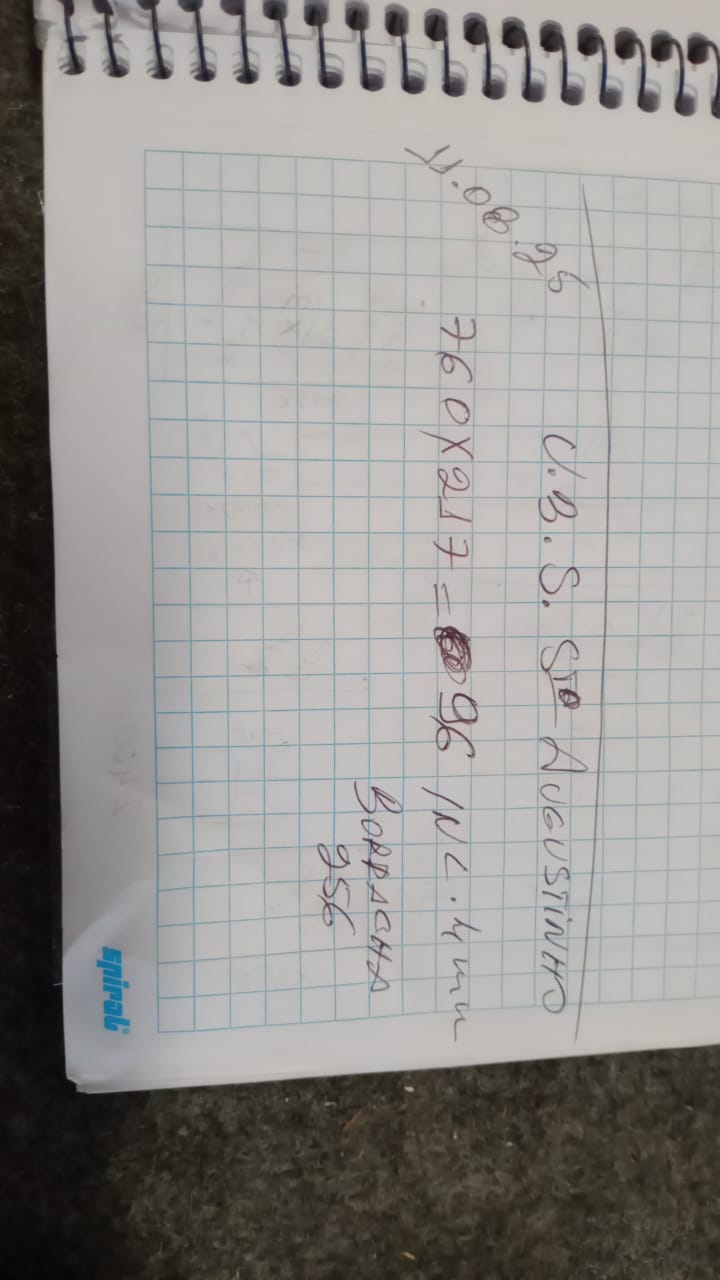 11.08.25
U.B.S. Sto AUGUSTINHO
760X217= 96 INC. 4mm
BORRACHA
256
spiral